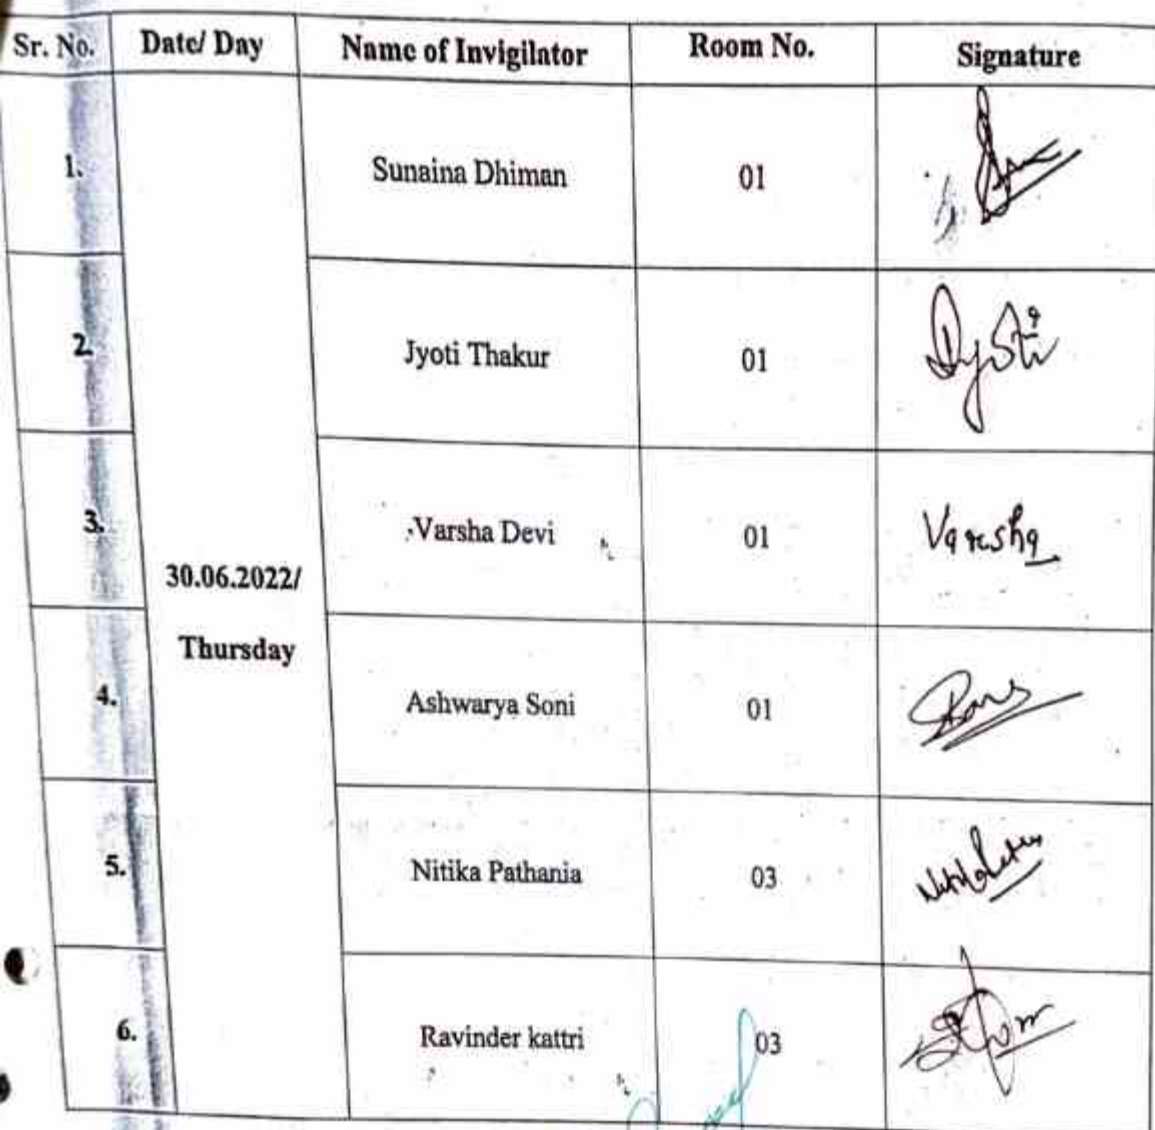 Sr. No. Date/ Day Name of Invigilator Room No. Signature
1. Sunaina Dhiman 01
2. Jyoti Thakur 01 Jyoti
3. Varsha Devi 01 Varsha
30.06.2022/
Thursday
4. Ashwarya Soni 01
5. Nitika Pathania 03
6. Ravinder kattri 03